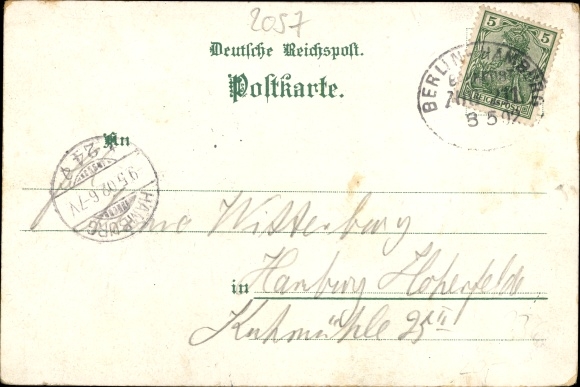 2057
Deutsche Reichspost.
Postkarte.
5 5
REICHSPOST
BERLIN HAMBURG
8 5 02
An
HAMBURG
9.5.02.6-7V
Wittenburg
in Hamburg Hohenfelde
Kuhmühle 25 II